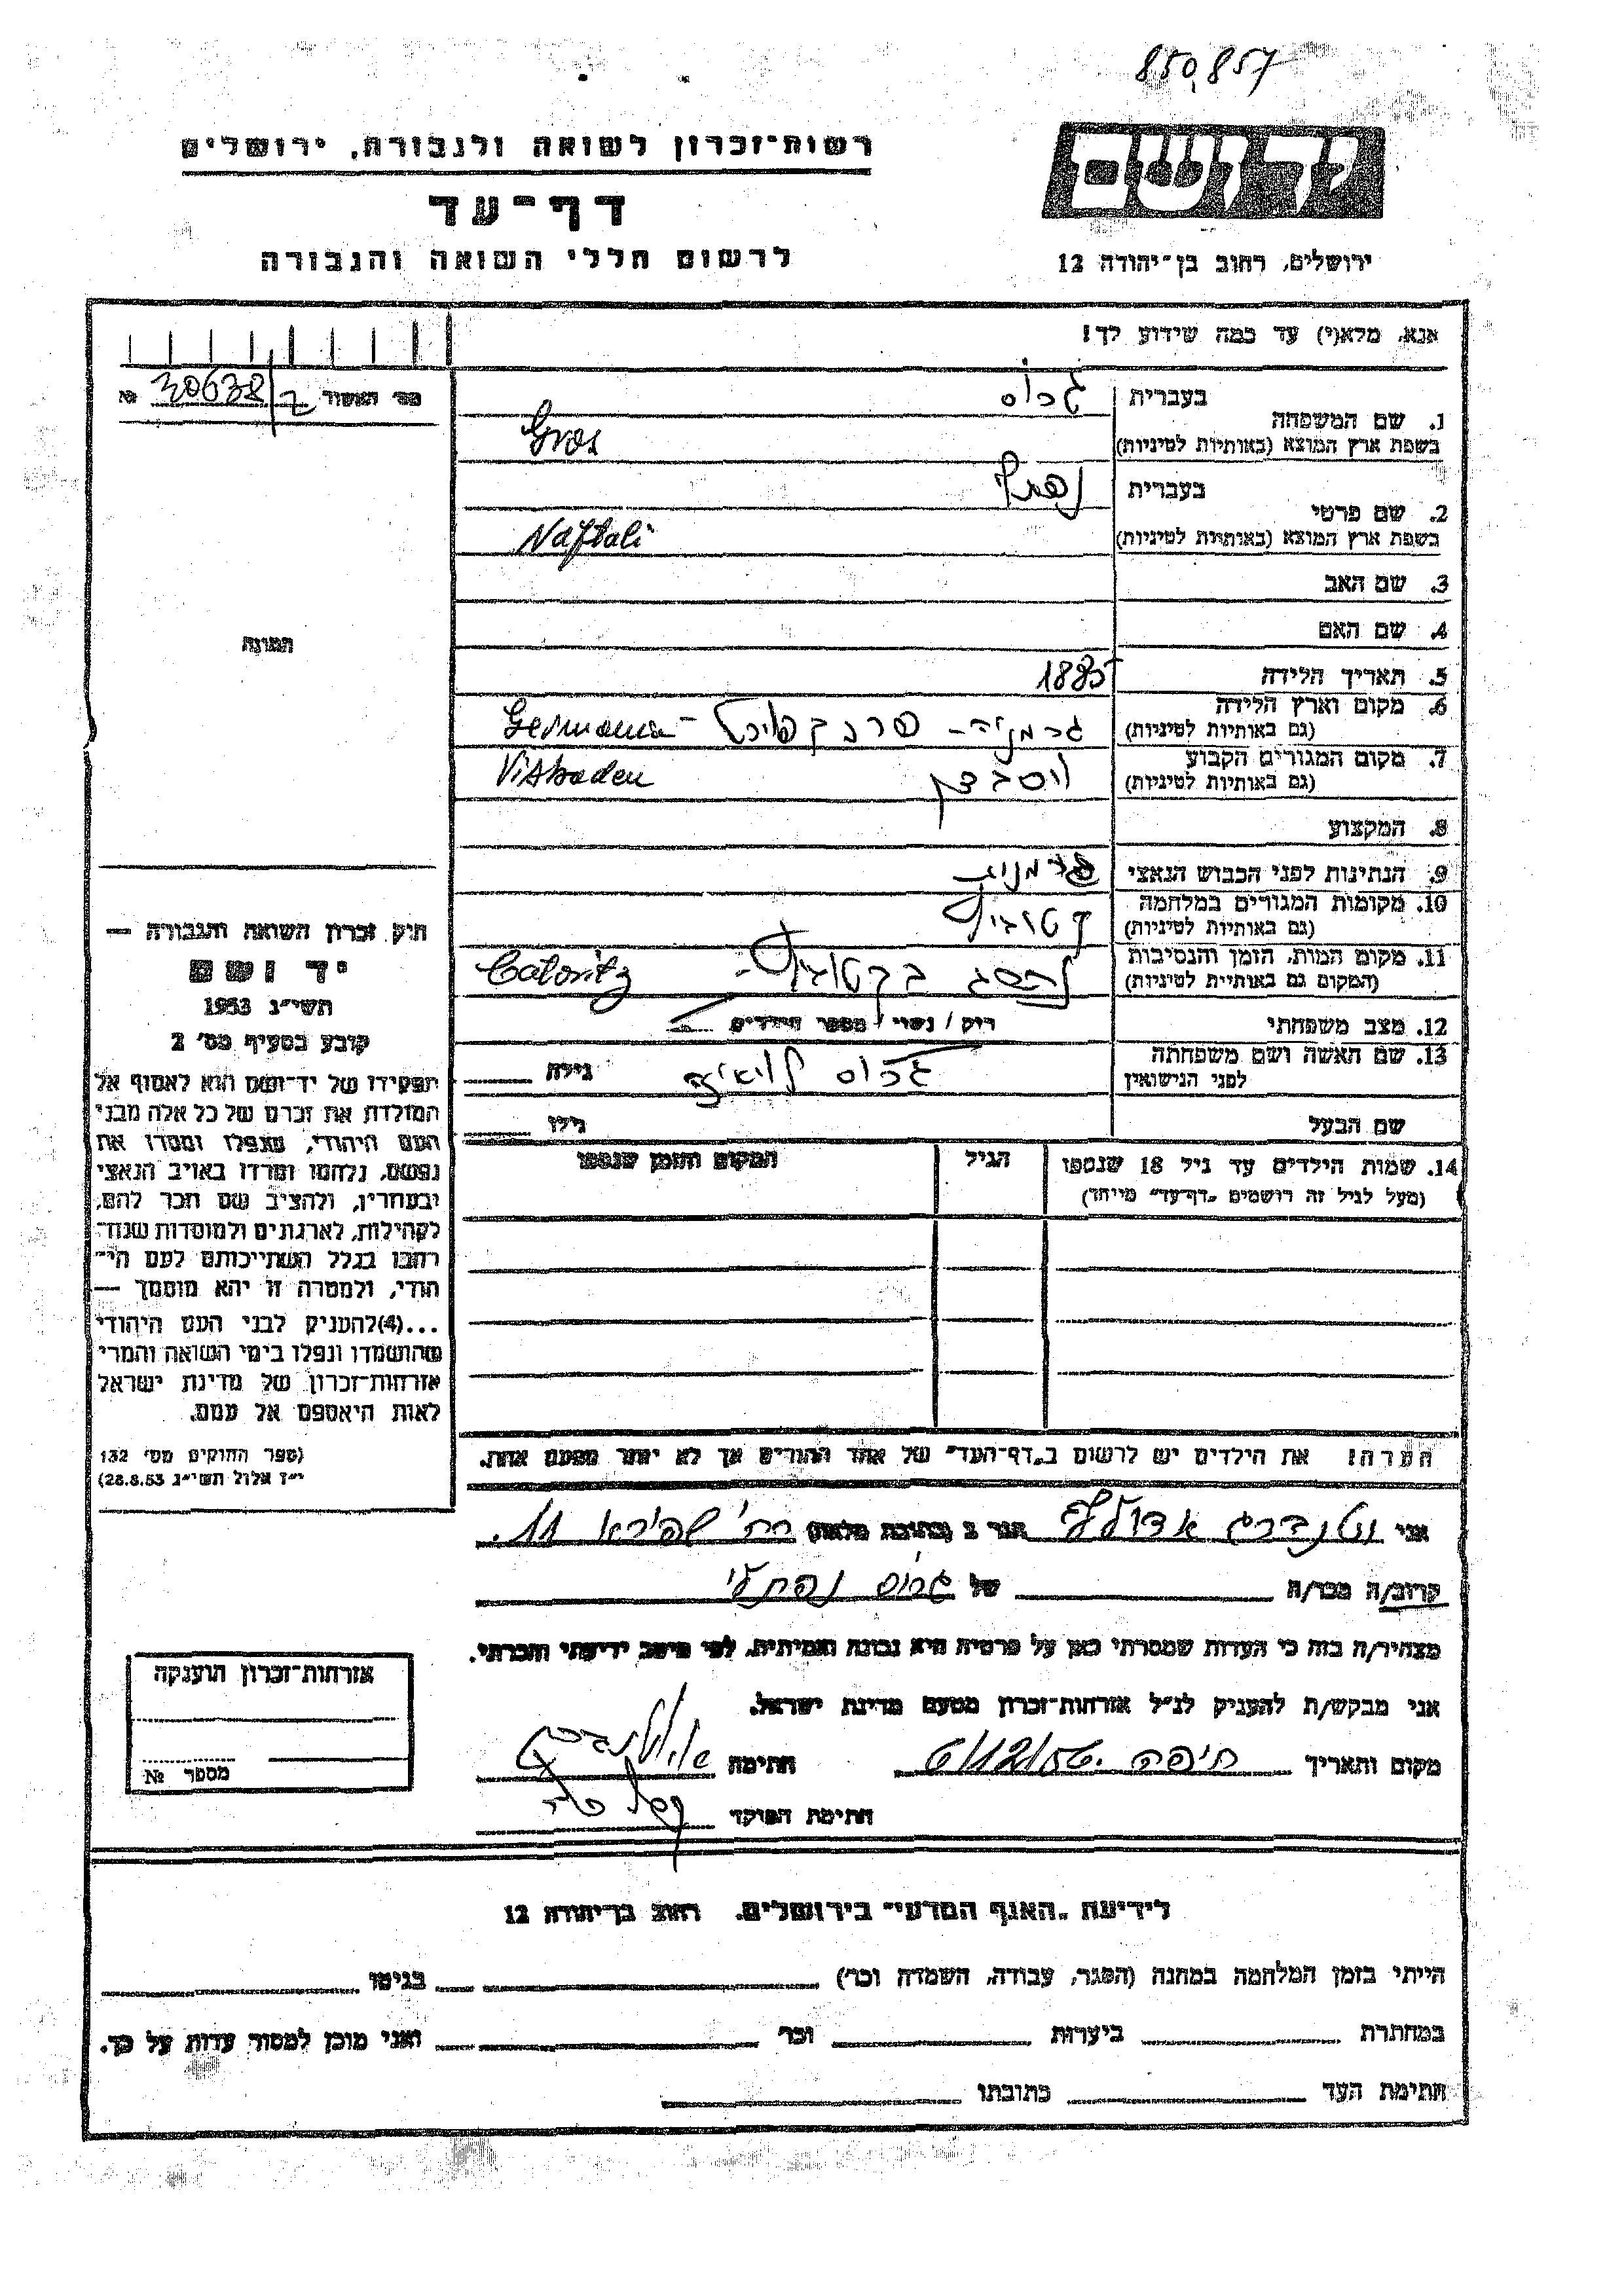 850,857
רשות־זכרון לשואה ולגבורה, ירושלים
יד ושם
דף־עד
לרשום חללי השואה והגבורה
ירושלים, רחוב בן־יהודה 12
אנא, מלא(י) עד כמה שידוע לך!
מס' האשור 30638/ No
בעברית גרוס
1. שם המשפחה
בשפת ארץ המוצא (באותיות לטיניות) Gros
בעברית נפתלי
2. שם פרטי
בשפת ארץ המוצא (באותיות לטיניות) Naftali
3. שם האב
4. שם האם
התמונה
5. תאריך הלידה 1885
6. מקום וארץ הלידה
(גם באותיות לטיניות) גרמניה - פרנקפורט - Germania
7. מקום המגורים הקבוע
(גם באותיות לטיניות) ויסבדן Visbaden
8. המקצוע
9. הנתינות לפני הכבוש הנאצי גרמנית
10. מקומות המגורים במלחמה
(גם באותיות לטיניות) קטוביץ
11. מקום המות, הזמן והנסיבות
(המקום גם באותיות לטיניות) נהרג בקטוביץ - Catovitz
12. מצב משפחתי רוק / נשוי / מספר הילדים
13. שם האשה ושם משפחתה
לפני הנישואין גרוס גילה
שם הבעל גילו
14. שמות הילדים עד גיל 18 שנספו הגיל המקום והזמן שנספו
(מעל לגיל זה רושמים "דף־עד" מיוחד)
תיק זכרון השואה והגבורה —
יד ושם
תשי"ג 1953
קובע בסעיף מס' 2
תפקידו של יד־ושם הוא לאסוף אל
המולדת את זכרם של כל אלה מבני
העם היהודי, שנפלו ומסרו את
נפשם, נלחמו ומרדו באויב הנאצי
ובעוזריו, ולהציב שם וזכר להם,
לקהילות, לארגונים ולמוסדות שנח־
רבו בגלל השתייכותם לעם הי־
הודי, ולמטרה זו יהא מוסמך —
...(4)להעניק לבני העם היהודי
שהושמדו ונפלו בימי השואה והמרי
אזרחות־זכרון של מדינת ישראל
לאות היאספם אל עמם.
(ספר החוקים מס' 132
י"ז אלול תשי"ג 28.8.53)
הערה! את הילדים יש לרשום ב"דף־העד" של אחד ההורים אך לא יותר מפעם אחת.
אני וטנברג אדולף הגר ב (כתובת מלאה) רח' שפירא 11.
קרוב/ה מכר/ה של גרוס נפתלי
מצהיר/ה בזה כי העדות שמסרתי כאן על פרטיה היא נכונה ואמיתית, לפי מיטב ידיעתי והכרתי.
אני מבקש/ת להעניק לנ"ל אזרחות־זכרון מטעם מדינת ישראל.
מקום ותאריך חיפה 6/12/56 חתימה
חתימת הפוקד
אזרחות־זכרון הוענקה
מספר No
לידיעת "האגף המדעי" בירושלים. רחוב בן־יהודה 12
הייתי בזמן המלחמה במחנה (הסגר, עבודה, השמדה וכו') בגיטו
במחתרת ביערות וכו' ואני מוכן למסור עדות על כך.
חתימת העד כתובתו